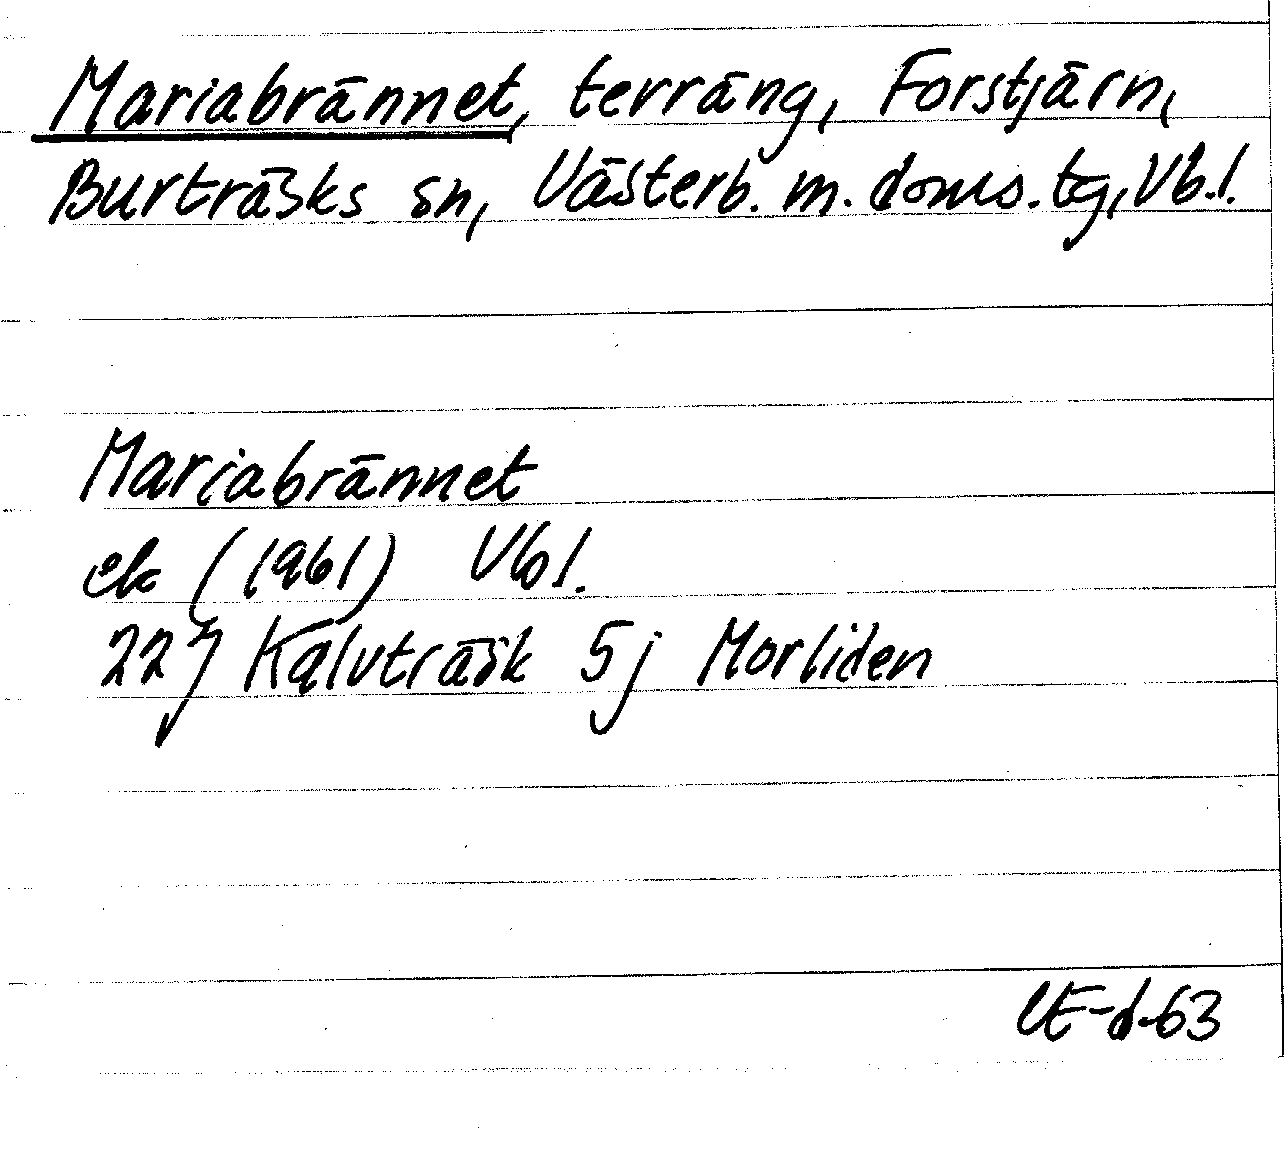 Mariabrännet, terräng, Forstjärn,
Burträsks sn, Västerb. m. doms. tg, Vb.l.
Mariabrännet
ek (1961) Vbl.
22J Kalvträsk 5j Morliden
UE-d-63